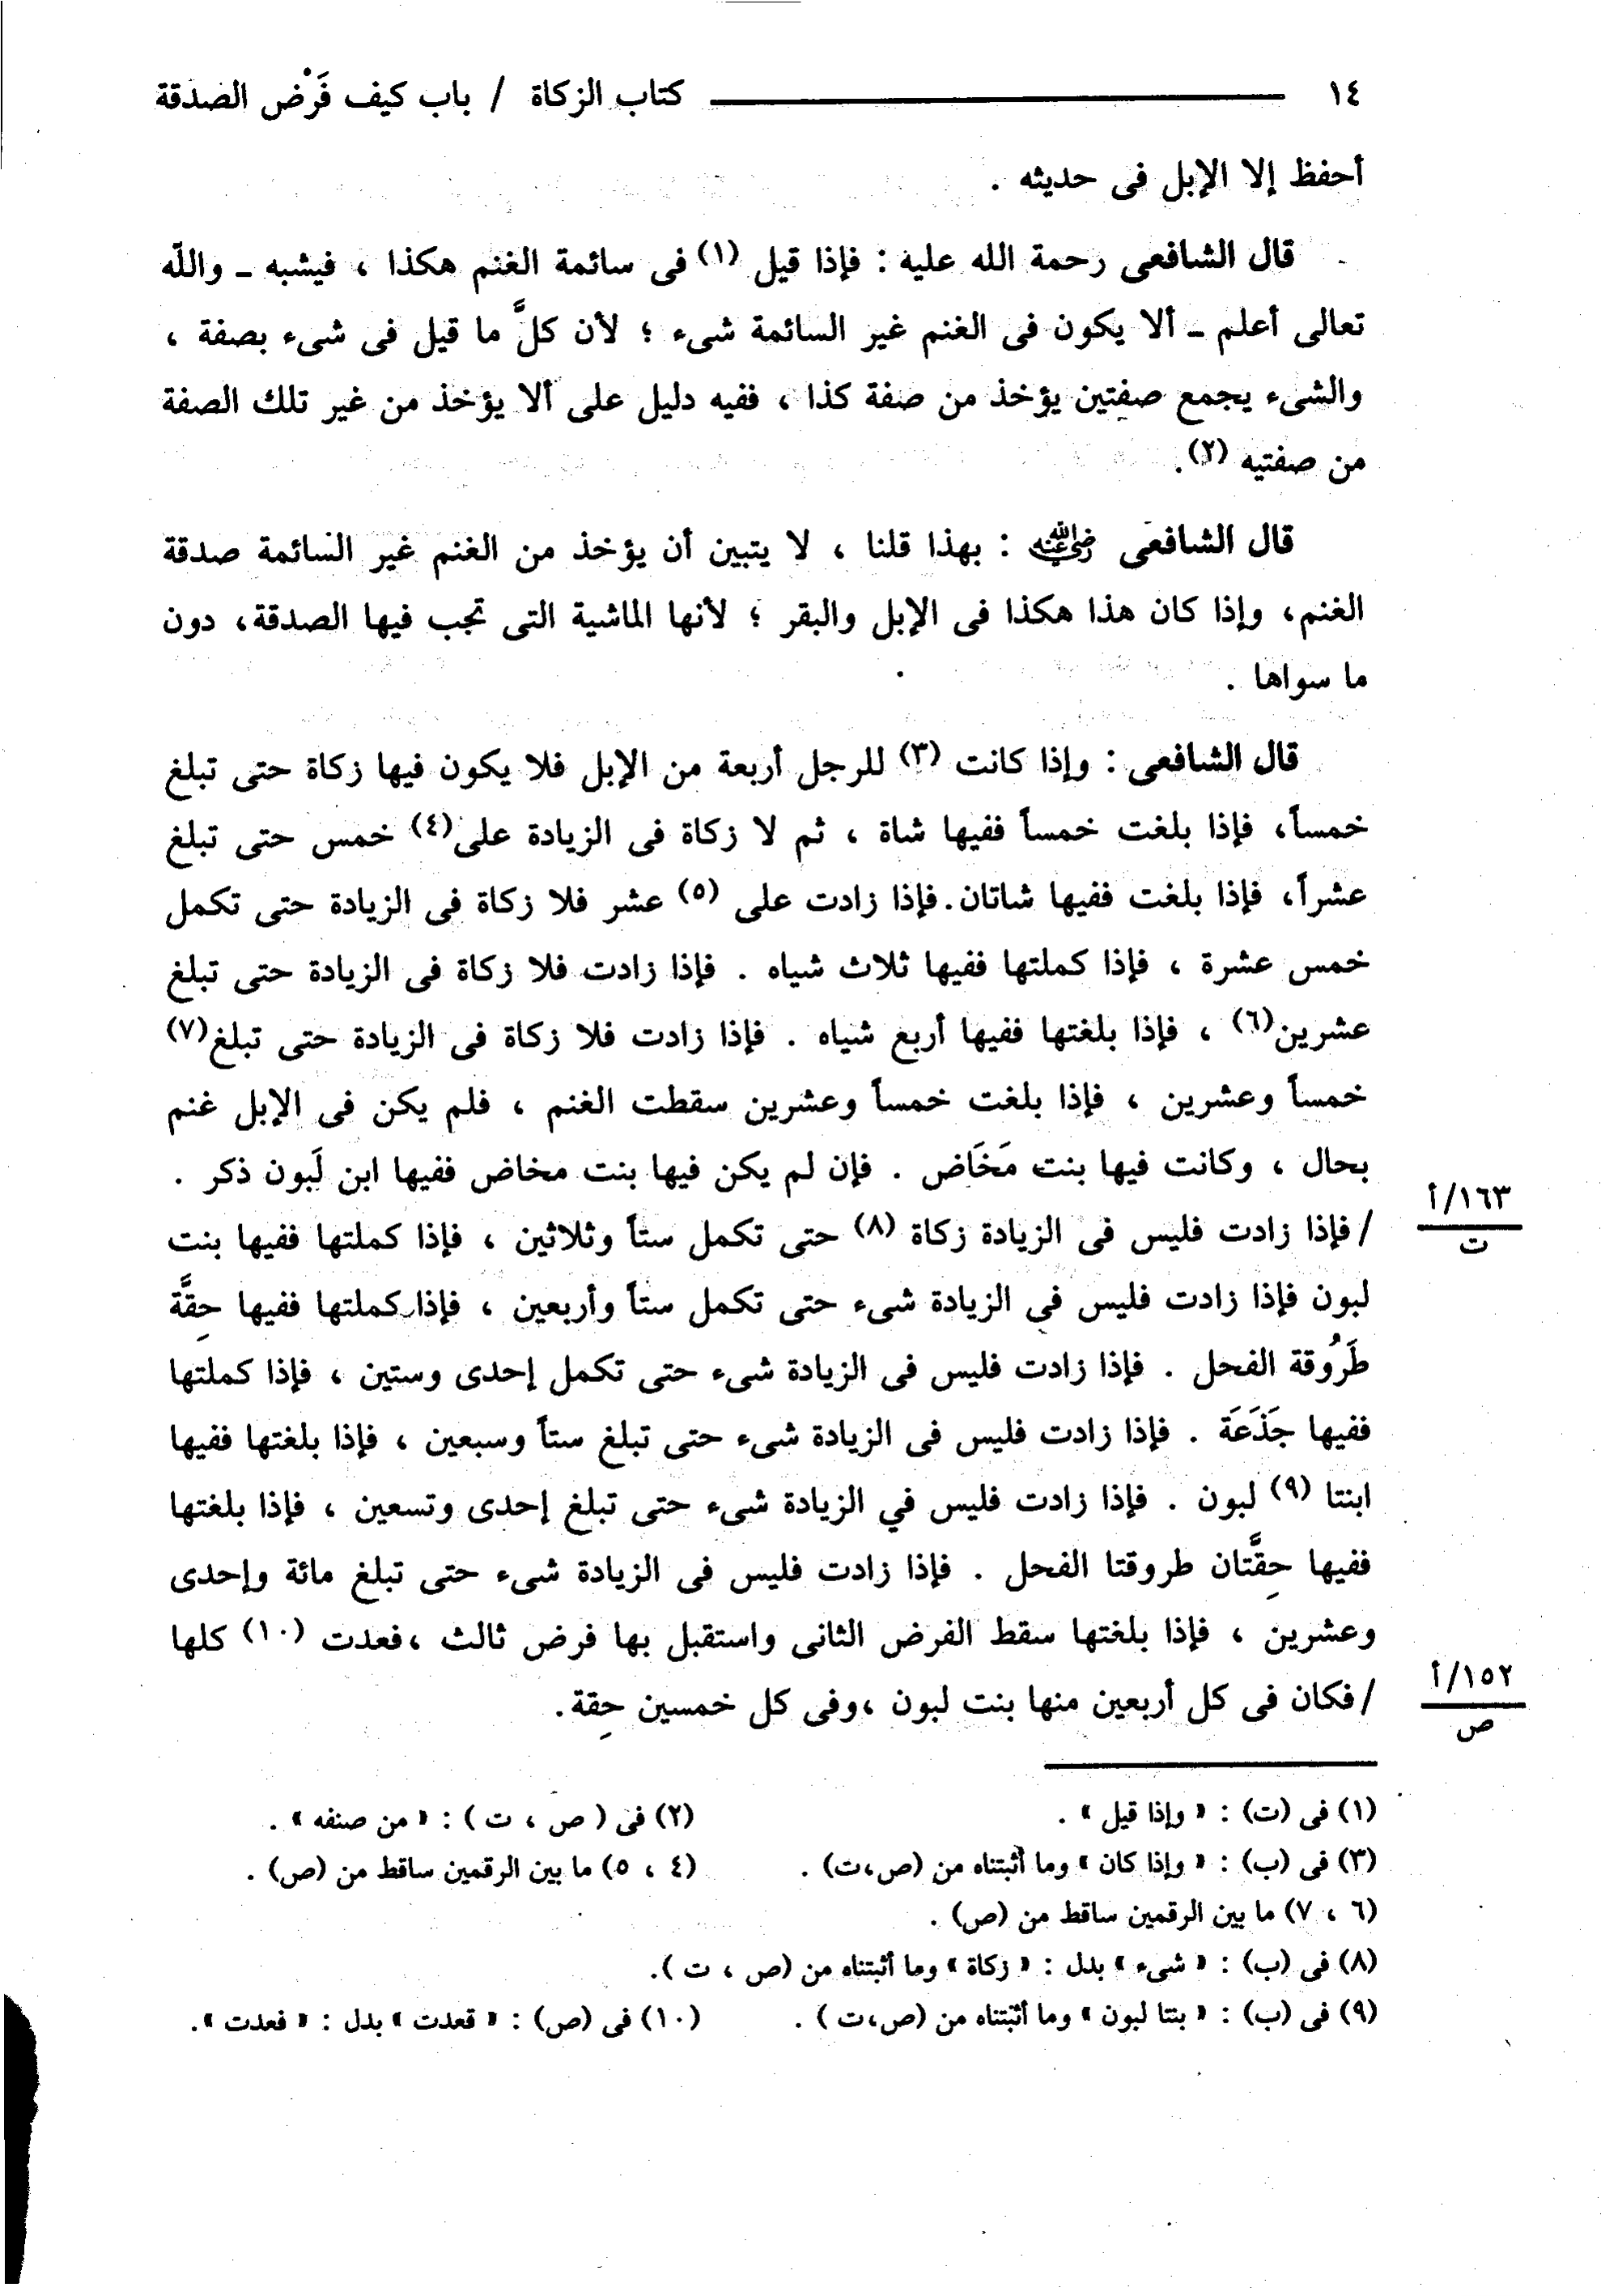 ١٤ ــــــ كتاب الزكاة / باب كيف فَرْض الصدقة
أحفظ إلا الإبل فى حديثه .
قال الشافعى رحمة الله عليه : فإذا قيل (١) فى سائمة الغنم هكذا ، فيشبه ـ والله
تعالى أعلم ـ ألا يكون فى الغنم غير السائمة شىء ؛ لأن كلَّ ما قيل فى شىء بصفة ،
والشىء يجمع صفتين يؤخذ من صفة كذا ، ففيه دليل على ألا يؤخذ من غير تلك الصفة
من صفتيه (٢).
قال الشافعى رضي الله عنه : بهذا قلنا ، لا يتبين أن يؤخذ من الغنم غير السائمة صدقة
الغنم، وإذا كان هذا هكذا فى الإبل والبقر ؛ لأنها الماشية التى تجب فيها الصدقة، دون
ما سواها .
قال الشافعى : وإذا كانت (٣) للرجل أربعة من الإبل فلا يكون فيها زكاة حتى تبلغ
خمساً، فإذا بلغت خمساً ففيها شاة ، ثم لا زكاة فى الزيادة على(٤) خمس حتى تبلغ
عشراً، فإذا بلغت ففيها شاتان. فإذا زادت على (٥) عشر فلا زكاة فى الزيادة حتى تكمل
خمس عشرة ، فإذا كملتها ففيها ثلاث شياه . فإذا زادت فلا زكاة فى الزيادة حتى تبلغ
عشرين(٦) ، فإذا بلغتها ففيها أربع شياه . فإذا زادت فلا زكاة فى الزيادة حتى تبلغ(٧)
خمساً وعشرين ، فإذا بلغت خمساً وعشرين سقطت الغنم ، فلم يكن فى الإبل غنم
بحال ، وكانت فيها بنت مَخَاض . فإن لم يكن فيها بنت مخاض ففيها ابن لَبون ذكر .
/ فإذا زادت فليس فى الزيادة زكاة (٨) حتى تكمل ستاً وثلاثين ، فإذا كملتها ففيها بنت
١٦٣/أ
ت
لبون فإذا زادت فليس فى الزيادة شىء حتى تكمل ستاً وأربعين ، فإذا كملتها ففيها حِقَّة
طَرُوقة الفحل . فإذا زادت فليس فى الزيادة شىء حتى تكمل إحدى وستين ، فإذا كملتها
ففيها جَذَعَة . فإذا زادت فليس فى الزيادة شىء حتى تبلغ ستاً وسبعين ، فإذا بلغتها ففيها
ابنتا (٩) لبون . فإذا زادت فليس في الزيادة شىء حتى تبلغ إحدى وتسعين ، فإذا بلغتها
ففيها حِقَّتان طروقتا الفحل . فإذا زادت فليس فى الزيادة شىء حتى تبلغ مائة وإحدى
وعشرين ، فإذا بلغتها سقط الفرض الثانى واستقبل بها فرض ثالث ،فعدت (١٠) كلها
/ فكان فى كل أربعين منها بنت لبون ،وفى كل خمسين حِقة.
١٥٢/أ
ص
(١) فى (ت) : « وإذا قيل » .
(٢) فى ( ص ، ت ) : « من صنفه » .
(٣) فى (ب) : « وإذا كان » وما أثبتناه من (ص،ت) .
(٤ ، ٥) ما بين الرقمين ساقط من (ص) .
(٦ ، ٧) ما بين الرقمين ساقط من (ص) .
(٨) فى (ب) : « شىء » بدل : « زكاة » وما أثبتناه من (ص ، ت ).
(٩) فى (ب) : « بنتا لبون » وما أثبتناه من (ص،ت ) .
(١٠) فى (ص) : « قعدت » بدل : « فعدت ».